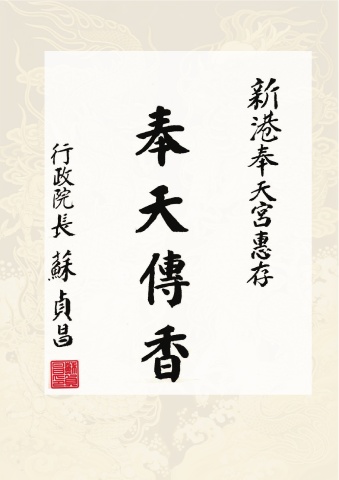 新港奉天宮惠存
奉天傳香
行政院長 蘇貞昌